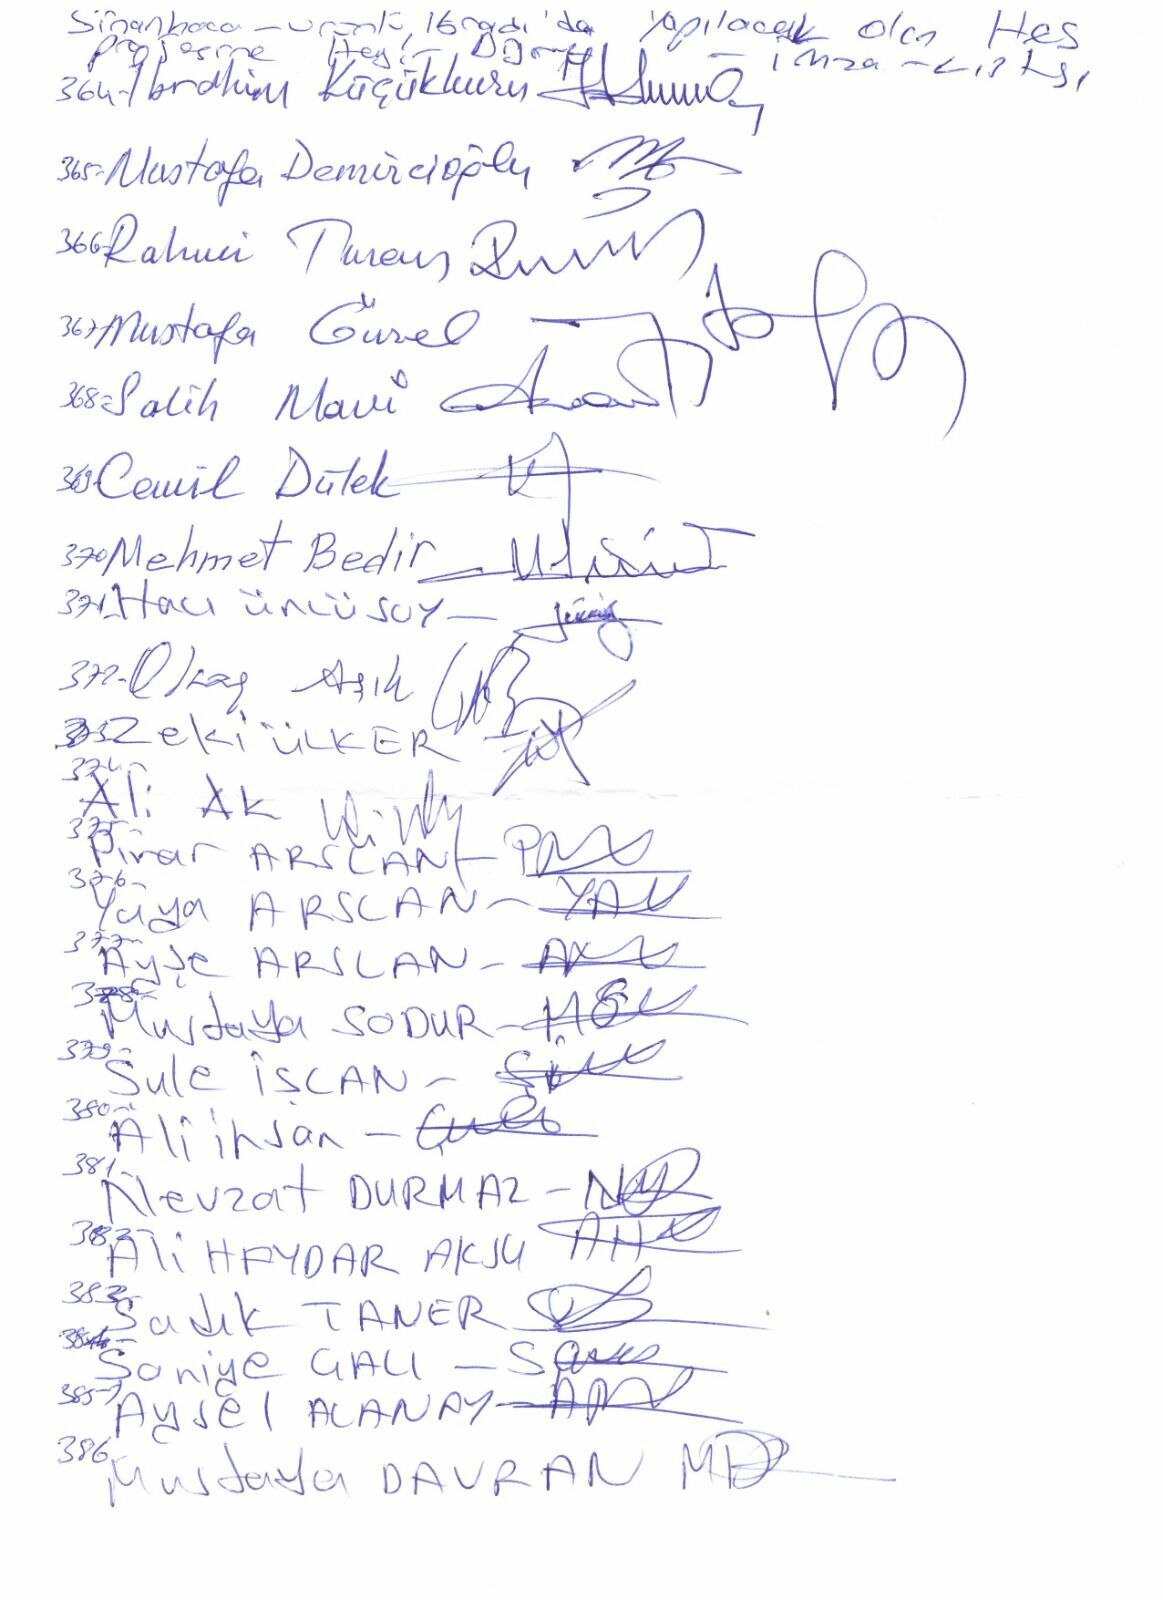 Sinanhoca - 'da yapılacak olan Hes
projesine Hayır imza - Listesi
364- İbrahim Küçükkuru
365- Mustafa Demircioğlu
366- Rahmi Turan
367- Mustafa Gürel
368- Salih Mavi
369- Cemil Dülek
370- Mehmet Bedir
371- Hacı üncüsoy -
372- Olcay Aşık
373- Zeki ÜLKER
374-
Ali Ak
375-
Pınar ARSLAN -
376-
Yaya ARSLAN -
377-
Ayşe ARSLAN -
378-
Mustaya SODUR -
379-
Şule İŞCAN -
380-
Ali ihsan -
381-
Nevzat DURMAZ -
382-
Ali HAYDAR AKSU
383-
Sadık TANER
384-
Saniye GALI -
385-
Aysel ALANAY -
386-
Mustaya DAVRAN